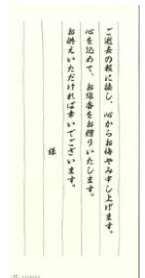 ご逝去の報に接し、心からお悔やみ申し上げます。
心を込めて、お線香をお贈りいたします。
お供えいただければ幸いでございます。
様